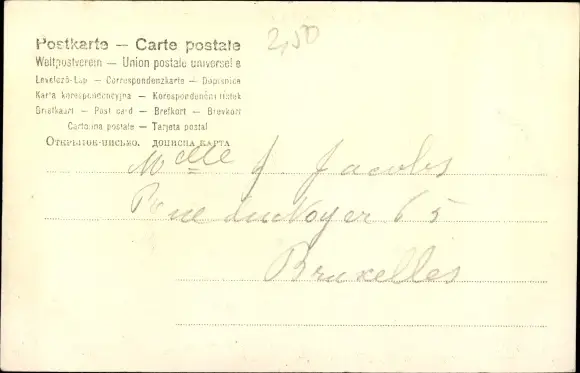 2,50
Postkarte — Carte postale
Weltpostverein — Union postale universelle
Levelező-Lap — Correspondenzkarte — Dopisnice
Karta korespondencyjna — Korespondenční lístek
Briefkaart — Post card — Brefkort — Brevkort
Cartolina postale — Tarjeta postal
Открытое письмо. дописна карта
Mlle J. Jacobs
Rue du Noyer 65
Bruxelles